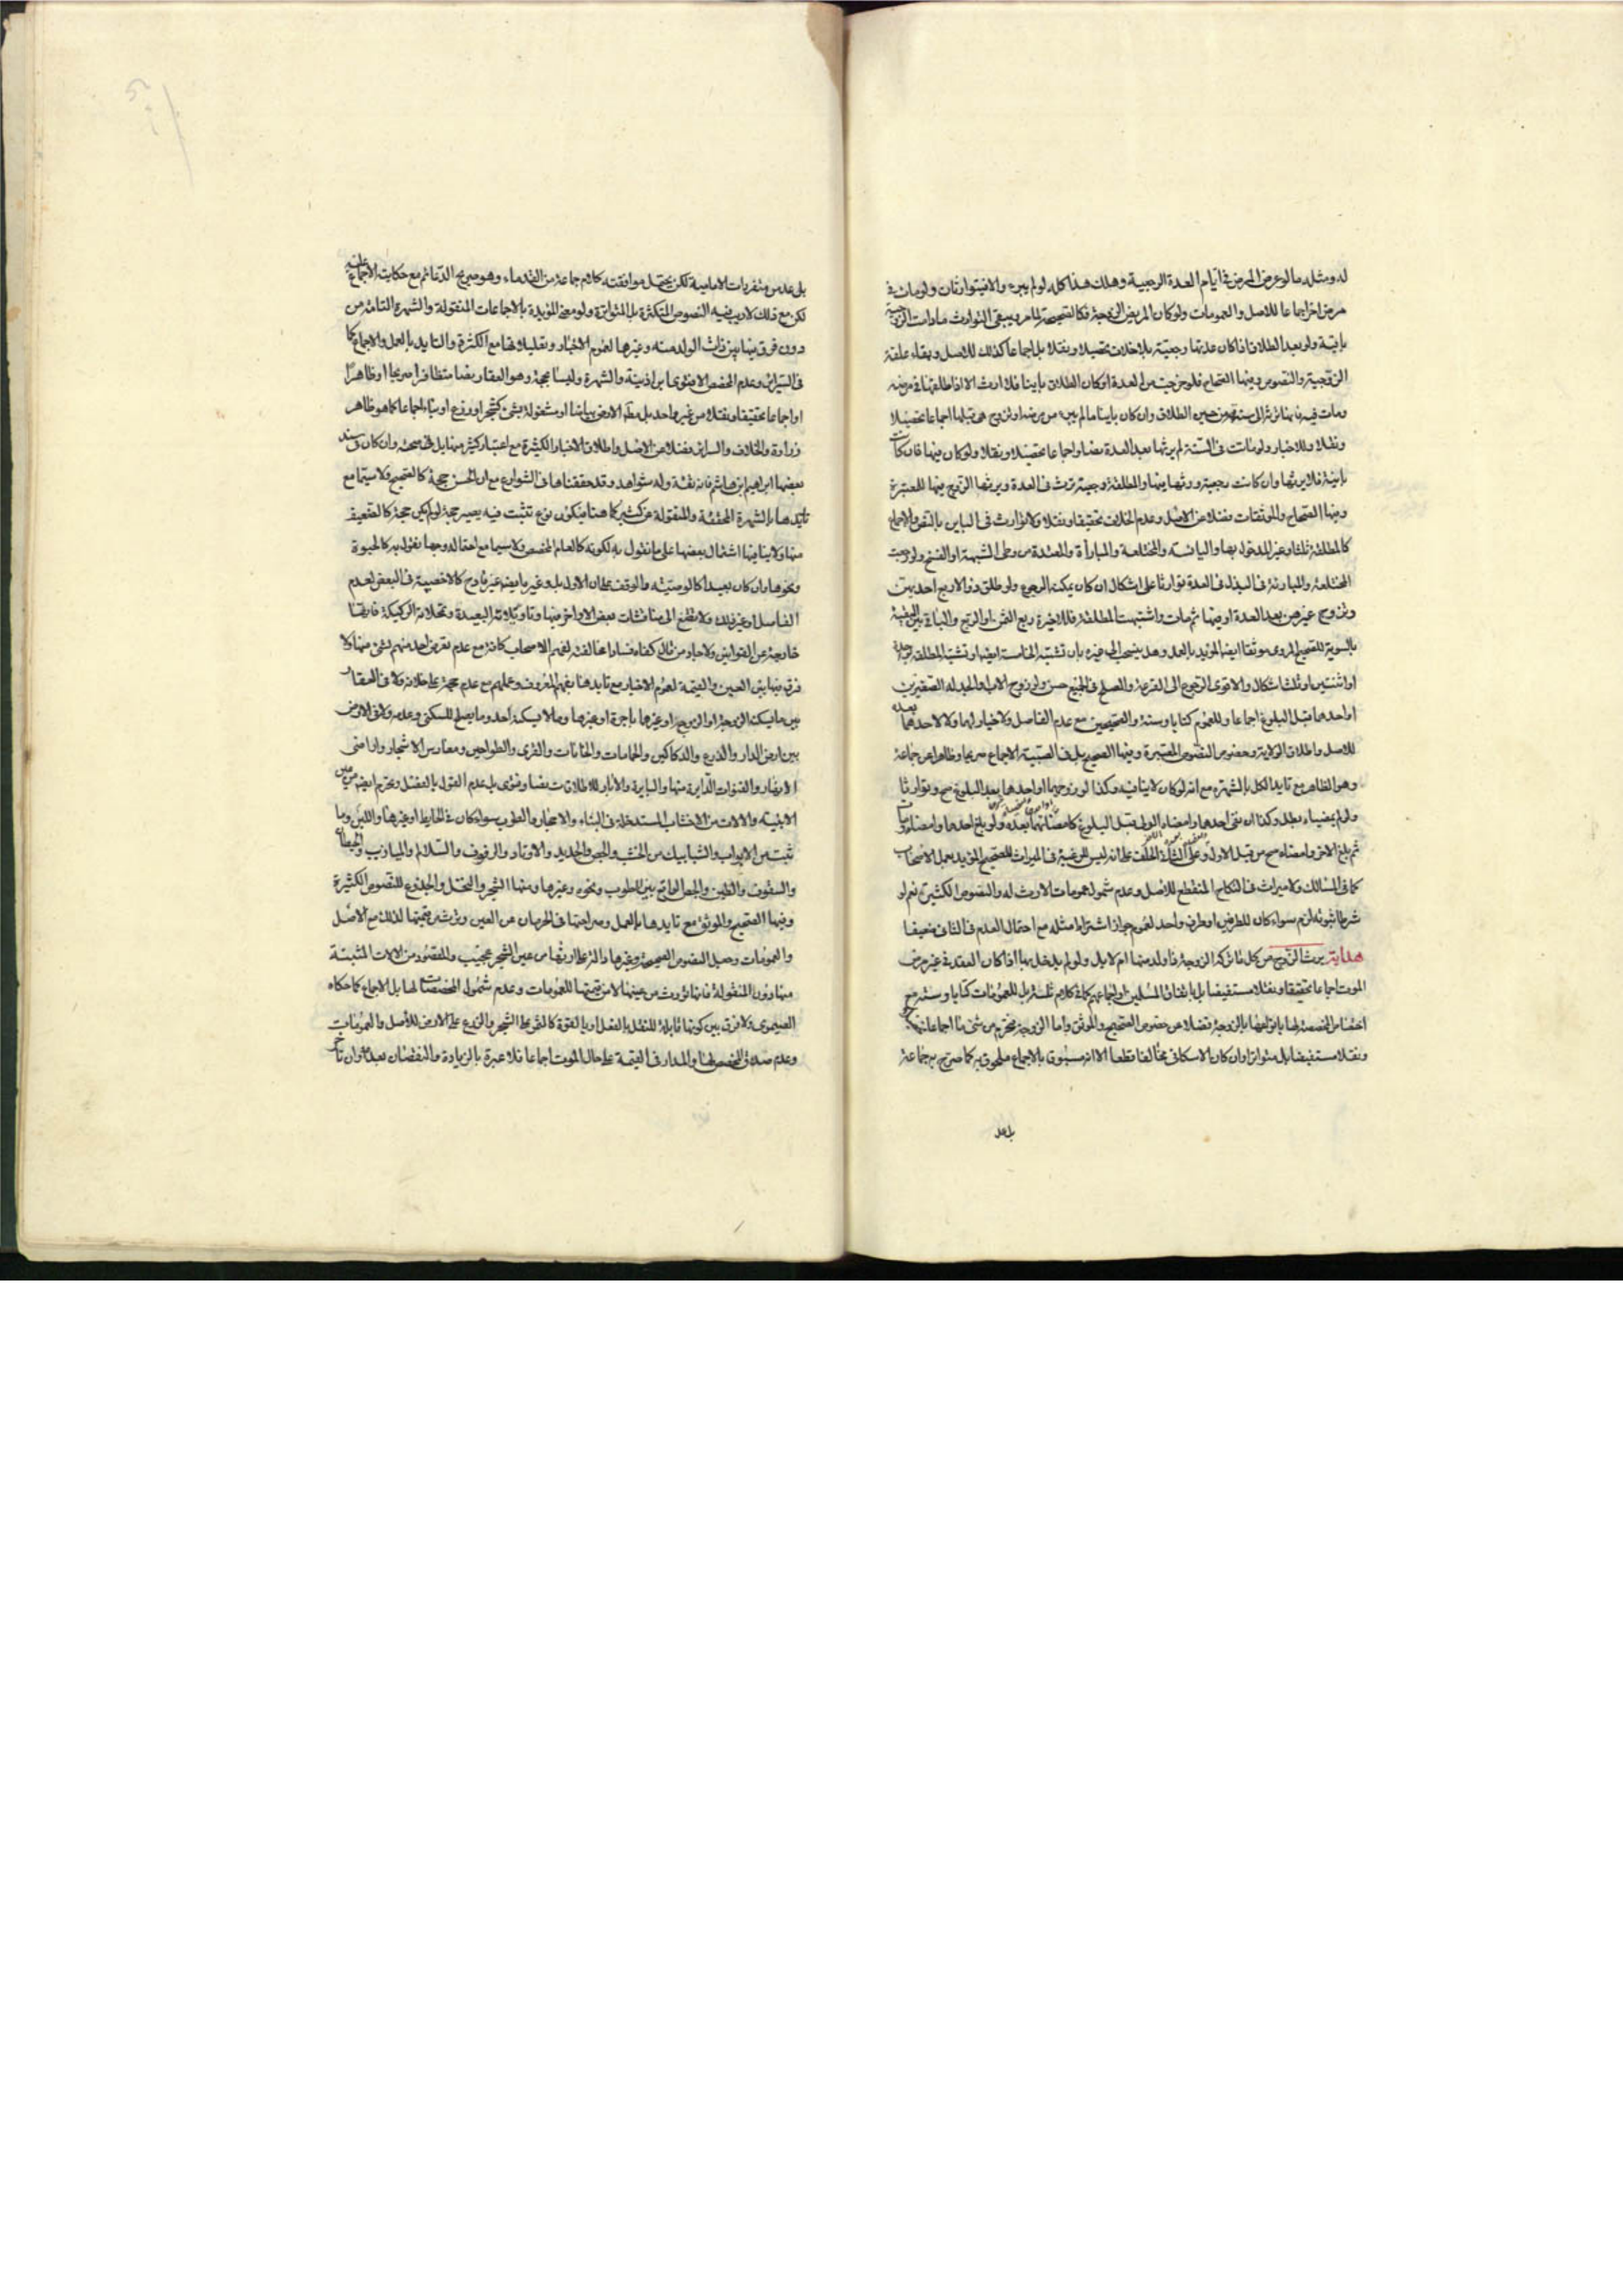 له ومثله ما لو عرض المرض في ايام العدة الرجعية وهلك هذا كله لو لم يبرء والا فيتوارثان ولو مات في
مرض اخر اجماعا للاصل والعمومات ولو كان المريض الزوجة فكالصحيحة لما مر ويبقى التوارث ما دامت الزوجية
باقية ولو بعد الطلاق اذا كان عدتها رجعية بلا خلاف تحصيلا ونقلا بل اجماعا كذلك للاصل وبقاء علقة
الزوجية والنصوص ومنها الصحاح فلو خرجت من العدة او كان الطلاق باينا فلا ارث الا اذا طلقها في مرضه
ومات فيه فانها ترثه الى سنة من حين الطلاق وان كان باينا ما لم يبرء من مرضه او تتزوج هي قبلها اجماعا تحصيلا
ونقلا وللاخبار ولو ماتت في السنة لم يرثها بعد العدة نصا واجماعا تحصيلا ونقلا ولو كان فيها فان كانت
باينة فلا يرثها وان كانت رجعية ورثها فيها والمطلقة رجعية ترث في العدة ويرثها الزوج فيها للمعتبرة
وفيها الصحاح والموثقات فضلا عن الاصل وعدم الخلاف تحقيقا ونقلا ولا توارث في الباين بالنص والاجماع
كالمطلقة ثلثا وغير المدخول بها واليائسة والمختلعة والمباراة والمعتدة من وطى الشبهة او الفسخ ولو رجعت
المختلعة والمبارئة في البذل في العدة توارثا على اشكال ان كان يمكنه الرجوع ولو طلق ذو الاربع احديهن
وتزوج غيرهن بعد العدة او فيها ثم مات واشتبهت المطلقة فللاخيرة ربع الثمن او الربع والباقي بين البقية
بالسوية للصحيح المروى موثقا ايضا المؤيد بالعمل وهل ينسحب الى غيره بان تشتبه الخامسة ايضا او تشتبه المطلقة بواحدة
او اثنتين او ثلث اشكال والاقوى الرجوع الى القرعة والصلح في الجميع حسن ولو زوج الاب او الجد له الصغيرين
او احدهما قبل البلوغ اجماعا وللعموم كتابا وسنة والصحيحين مع عدم الفاصل ولا خيار لهما ولا لاحدهما بعده
للاصل واطلاق الولاية وخصوص النصوص المعتبرة وفيها الصحيح بل في الصبية الاجماع صريحا وظاهرا من جماعة
وهو الظاهر مع تايد الكل بالشهرة مع انه لو كان لا ينافيه وكذا لو زوجهما او احدهما بعد البلوغ صح وتوارثا
ثم بلغ الاخر وامضاه صح من قبل الاول وعلى الثاني الحلف على انه ليس للرغبة في الميراث للصحيح المؤيد بعمل الاصحاب
كما في المسالك ولا ميراث في النكاح المنقطع للاصل وعدم شمول عمومات الارث له والنصوص الكثيرة نعم لو
شرطا ثبوته لزم سواء كان للطرفين او طرف واحد لعموم جواز اشتراط مثله مع احتمال العدم في الثاني ضعيفا
هداية يرث الزوج من كل ما تركه الزوجة ذا ولد منها ام لا بل ولو لم يدخل بها اذا كان العقد في غير مرض
الموت اجماعا تحقيقا ونقلا مستفيضا بل باتفاق المسلمين واجماعهم كما في كلام ثلثة بل للعمومات كتابا وسنة مع
ونقلا مستفيضا بل متواترا وان كان الاسكافي مخالفا قطعا الا انه مسبوق بالاجماع ملحوق به كما صرح به جماعة
بل عد
بل عد من متفردات الامامية لكن يحتمل موافقته كلام جماعة من القدماء وهو صريح الدعائم مع حكايته الاجماع عليه
لكن مع ذلك لا ريب فيه النصوص المتكثرة بل المتواترة ولو معنى المؤيدة بالاجماعات المنقولة والشهرة التامة من
دون فرق بينها بين ذات الولد منه وغيرها لعموم الاخبار وتعليلاتها مع الكثرة والتايد بالعمل والاجماع كما
في السرائر وعدم المخصص الا فتوى ابن اذينة والشهرة وليسا بحجة وهو العقار نصا متظافرا صريحا او ظاهرا
او اجماعا تحقيقا ونقلا من غير واحد بل مطلق الارض بياضا او مشغولة بشئ كشجر او زرع او بناء اجماعا كما هو ظاهر
زرارة والخلاف والسرائر فضلا عن الاصل واطلاق الاخبار الكثيرة مع اعتبار كثير منها بل في صحته وان كان في سند
بعضها ابراهيم ابن هاشم فانه ثقة وله شواهد وقد حققناها في الشوارع مع ان الحسن حجة كالصحيح ولا سيما مع
تايدها بالشهرة المحققة والمنقولة عن كثير كما هنا فيكون نوع تثبت فيه يصير حجة لو لم يكن حجة كالضعيف
منها ولا ينافيها اشتمال بعضها على ما نقول به لكونه كالعام المخصص ولا سيما مع احتماله وجها نقول به كالحبوة
ونحوها وان كان بعيدا كالوصية والوقف بطلان الاول بل وغير ما ايضا غير قادح كالاخصية في البعض لعدم
الفاصل وغير ذلك ولا تطلع الى مناقشات بعض الاواخر فيها وتاويلاته البعيدة وتمحلاته الركيكة فانها
خارجة عن القوانين ولا جابر من ذلك كفاه فسادا مخالفته لفهم الاصحاب كافة مع عدم تعرض احد منهم لشئ منها ولا
فرق فيها بين العين والقيمة لعموم الاخبار مع تايدها بفهم المعروف وعملهم مع عدم حجة على خلافه ولا في العقار
بين ما يسكنه الزوجة او الزوج او غيرها باجرة او غيرها وما لا يسكنه احد وما يصلح للسكنى وعدمه ولا في الارض
بين ارض الدار والزرع والدكاكين والحمامات والخانات والقرى والطواحين ومغارس الاشجار واراضى
الانهار والقنوات الدايرة منها والبايرة والآبار للاطلاقات نصا وفتوى بل عدم القول بالفصل وتحرم ايضا من عين
الابنية والالات من الاخشاب المستدخلة في البناء والاحجار والطوب سواء كان في الحايط او غيرها واللبن وما
ثبت من الابواب والشبابيك من الخشب والجص والحديد والاوتاد والرفوف والسلالم والميازيب
والسقوف والطين والجص الواقع بين الطوب ونحوه وغيرها ومنها الشجر والنخل والجذوع للنصوص الكثيرة
وفيها الصحيح والموثق مع تايدها بالعمل وصراحتها في الحرمان عن العين وترث قيمتها لذلك مع الاصل
منها دون المنقولة فانها تورث من عينها لا من قيمتها للعمومات وعدم شمول المخصصات لها بل الاجماع كما حكاه
الصيمرى ولا فرق بين كونها قابلة للنقل بالفعل او بالقوة كالثمر على الشجر والزرع على الارض للاصل والعمومات
وعدم صدق المخصص لها والمدار في القيمة على حال الموت اجماعا فلا عبرة بالزيادة والنقصان بعده وان تاخر